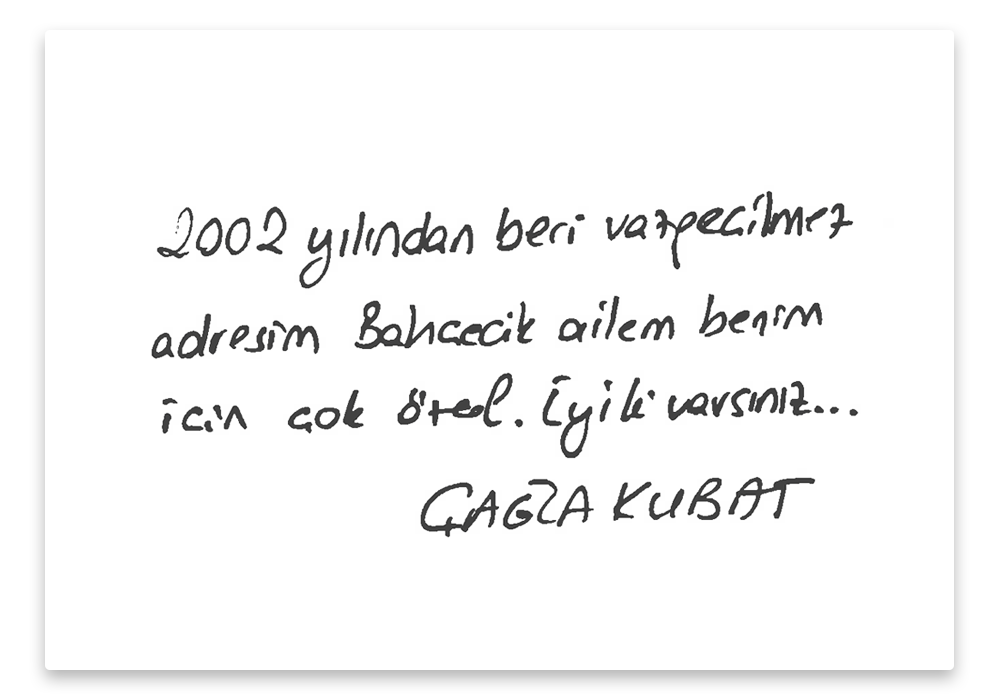 2002 yılından beri vazgeçilmez
adresim Bahçecik ailem benim
için çok özel. İyiki varsınız...
ÇAGLA KUBAT